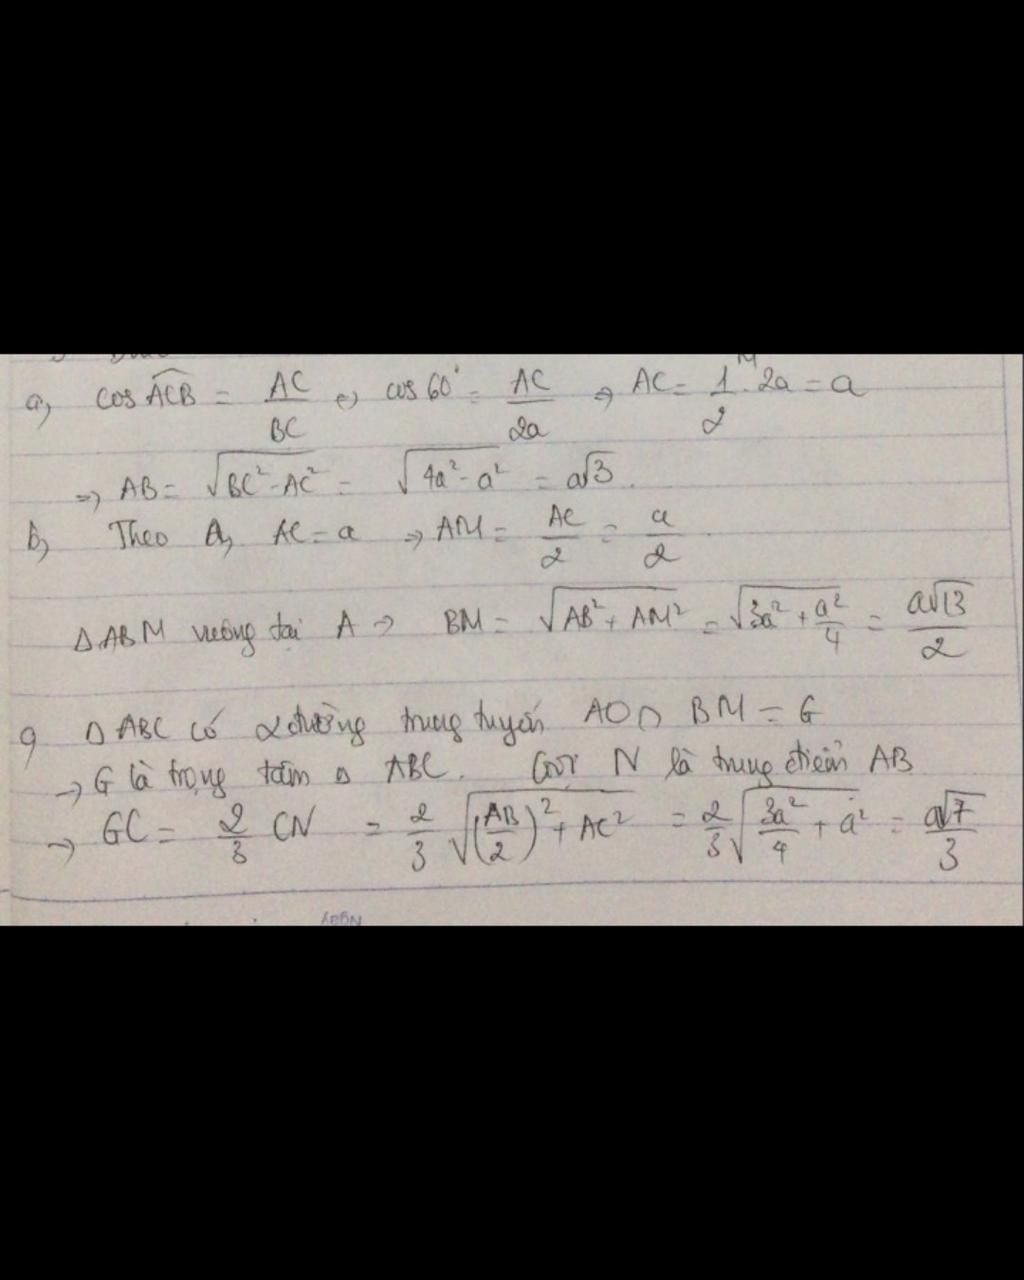 a, cos ACB = AC/BC ⇔ cos 60° = AC/2a ⇒ AC = 1/2 . 2a = a
⇒ AB = √(BC² - AC²) = √(4a² - a²) = a√3.
b, Theo a, AC = a ⇒ AM = AC/2 = a/2
Δ ABM vuông tại A ⇒ BM = √(AB² + AM²) = √(3a² + a²/4) = a√13/2
Δ ABC có 2 đường trung tuyến AO ∩ BM = G
→ G là trọng tâm Δ ABC. Gọi N là trung điểm AB
→ GC = 2/3 CN = 2/3 √((AB/2)² + AC²) = 2/3 √(3a²/4 + a²) = a√7/3
Ngày